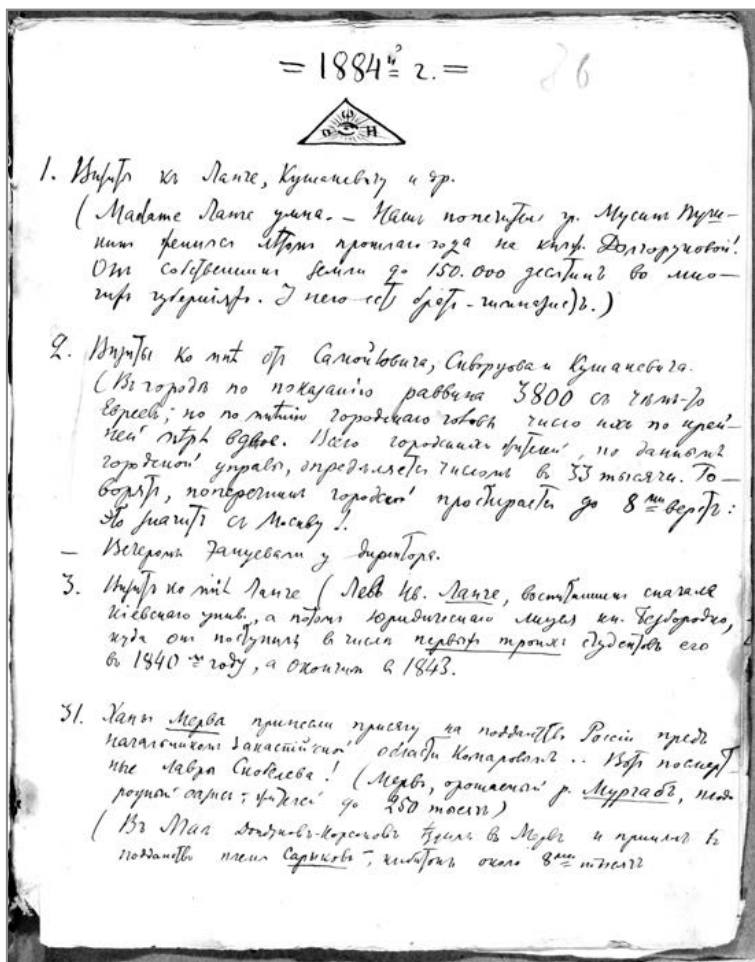 = 1884й г. =
86
О Ѡ Н
1. Визитъ къ Ланге, Кушакевичу и др.
(Madame Ланге умна. — Нашъ попечитель гр. Мусинъ Пуш-
кинъ женился лѣтомъ прошлаго года на княж. Долгоруковой!
Онъ собственникъ земли до 150.000 десятинъ во мно-
гихъ губернiяхъ. У него есть братъ-гимназистъ.)
2. Визиты ко мнѣ отъ Самойловича, Сиворцова и Кушакевича.
(Въ городѣ по показанiю раввина 3800 съ чѣмъ-то
Евреевъ; но по мнѣнiю городскаго головы число ихъ по край-
ней мѣрѣ вдвое. Всего городскихъ жителей, по даннымъ
городской управы, опредѣляется числомъ въ 33 тысячи. Го-
ворятъ, поперечникъ городской простирается до 8ми верстъ:
это значитъ съ Москву!
— Вечеромъ танцевали у директора.
3. Визитъ ко мнѣ Ланге (Левъ Ив. Ланге, воспитанникъ сначала
Кiевскаго унив., а потомъ юридическаго лицея кн. Безбородко,
куда онъ поступилъ въ числѣ первыхъ троихъ студентовъ его
въ 1840м году, а окончилъ въ 1843.
31. Ханы Мерва принесли присягу на подданство Россiи предъ
начальникомъ Закаспiйской области Комаровымъ .. Вотъ посмерт-
ные лавры Скобелева! (Мервъ, орошаемый р. Мургабъ, плодо
родный оазисъ; жителей до 250 тысячъ)
(Въ Маѣ Дондуковъ-Корсаковъ ѣздилъ въ Мервъ и принялъ въ
подданство племя Сарыковъ —, кибитокъ около 8ми тысячъ